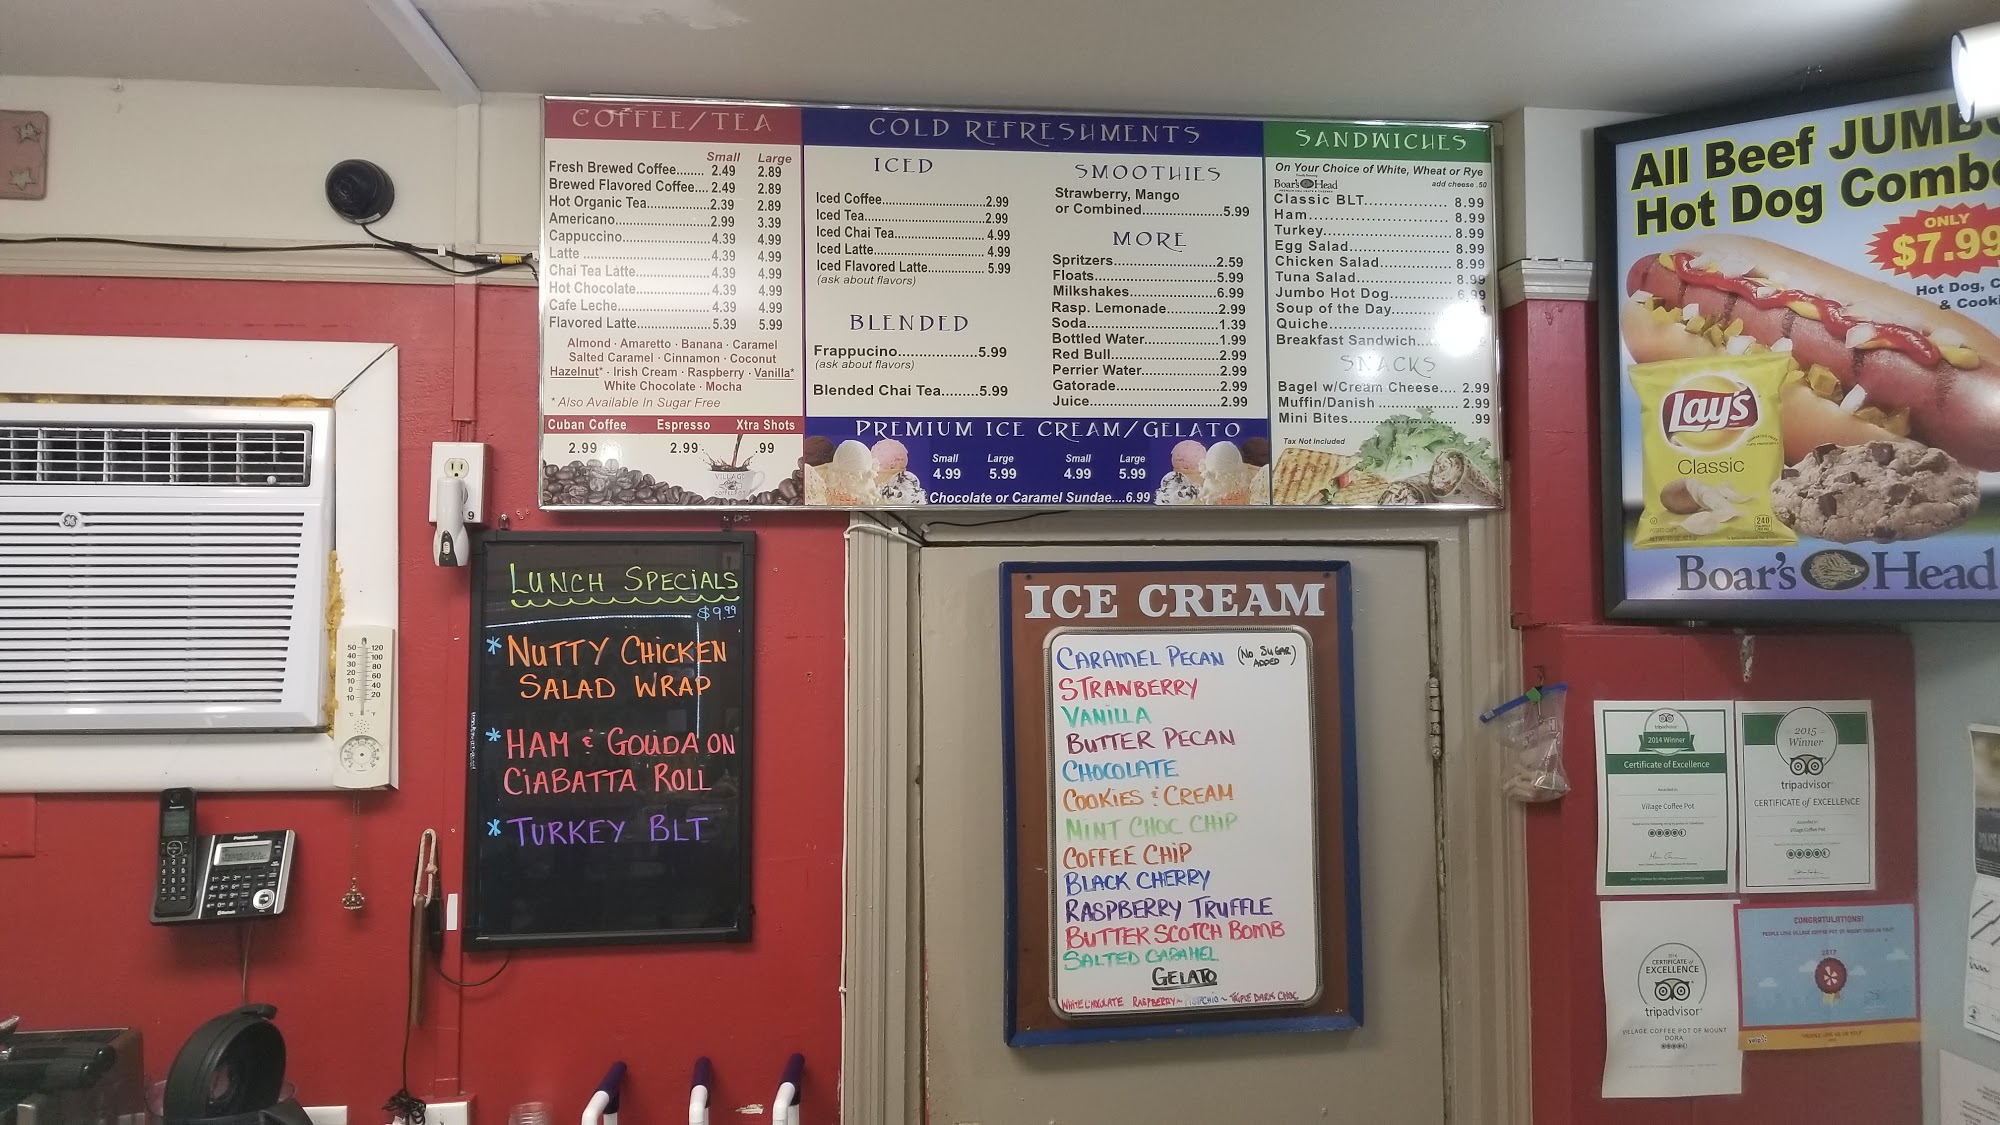 COFFEE/TEA
Small Large
Fresh Brewed Coffee........ 2.49 2.89
Brewed Flavored Coffee.... 2.49 2.89
Hot Organic Tea............... 2.39 2.89
Americano....................... 2.99 3.39
Cappuccino...................... 4.39 4.99
Latte................................ 4.39 4.99
Chai Tea Latte................... 4.39 4.99
Hot Chocolate................... 4.39 4.99
Cafe Leche....................... 4.39 4.99
Flavored Latte................... 5.39 5.99
Almond · Amaretto · Banana · Caramel
Salted Caramel · Cinnamon · Coconut
Hazelnut* · Irish Cream · Raspberry · Vanilla*
White Chocolate · Mocha
* Also Available In Sugar Free
Cuban Coffee Espresso Xtra Shots
2.99 2.99 .99
VILLAGE
COFFEE POT
COLD REFRESHMENTS
ICED
Iced Coffee........................2.99
Iced Tea............................2.99
Iced Chai Tea..................... 4.99
Iced Latte.......................... 4.99
Iced Flavored Latte............. 5.99
(ask about flavors)
BLENDED
Frappucino....................5.99
(ask about flavors)
Blended Chai Tea.........5.99
SMOOTHIES
Strawberry, Mango
or Combined....................5.99
MORE
Spritzers........................2.59
Floats............................5.99
Milkshakes.....................6.99
Rasp. Lemonade.............2.99
Soda..............................1.39
Bottled Water.................1.99
Red Bull.........................2.99
Perrier Water..................2.99
Gatorade........................2.99
Juice..............................2.99
PREMIUM ICE CREAM/GELATO
Small Large Small Large
4.99 5.99 4.99 5.99
Chocolate or Caramel Sundae....6.99
SANDWICHES
On Your Choice of White, Wheat or Rye
Boar's Head add cheese .50
Classic BLT.................. 8.99
Ham............................. 8.99
Turkey.......................... 8.99
Egg Salad..................... 8.99
Chicken Salad............... 8.99
Tuna Salad................... 8.99
Jumbo Hot Dog............. 6.99
Soup of the Day............
Quiche.........................
Breakfast Sandwich.......
SNACKS
Bagel w/Cream Cheese.... 2.99
Muffin/Danish ................ 2.99
Mini Bites........................ .99
Tax Not Included
All Beef JUMBO
Hot Dog Combo
ONLY
$7.99
Hot Dog, C
& Cooki
Lay's
Classic
240
Boar's Head
GE
9
LUNCH SPECIALS
$9.99
* NUTTY CHICKEN
SALAD WRAP
* HAM & GOUDA ON
CIABATTA ROLL
* TURKEY BLT
ICE CREAM
CARAMEL PECAN (NO SUGAR ADDED)
STRAWBERRY
VANILLA
BUTTER PECAN
CHOCOLATE
COOKIES & CREAM
MINT CHOC CHIP
COFFEE CHIP
BLACK CHERRY
RASPBERRY TRUFFLE
BUTTER SCOTCH BOMB
SALTED CARAMEL
GELATO
WHITE CHOCOLATE RASPBERRY ~ PISTACHIO ~ TRIPLE DARK CHOC
50 120
40 100
30 80
20 60
10 40
0 20
Panasonic
tripadvisor
2014 Winner
Certificate of Excellence
Village Coffee Pot
2015
Winner
tripadvisor
CERTIFICATE of EXCELLENCE
Village Coffee Pot
CERTIFICATE of
EXCELLENCE
tripadvisor
VILLAGE COFFEE POT OF MOUNT
DORA
CONGRATULATIONS!
PEOPLE LOVE VILLAGE COFFEE POT OF MOUNT DORA ON YELP!
2017
yelp
"PEOPLE LOVE US ON YELP"